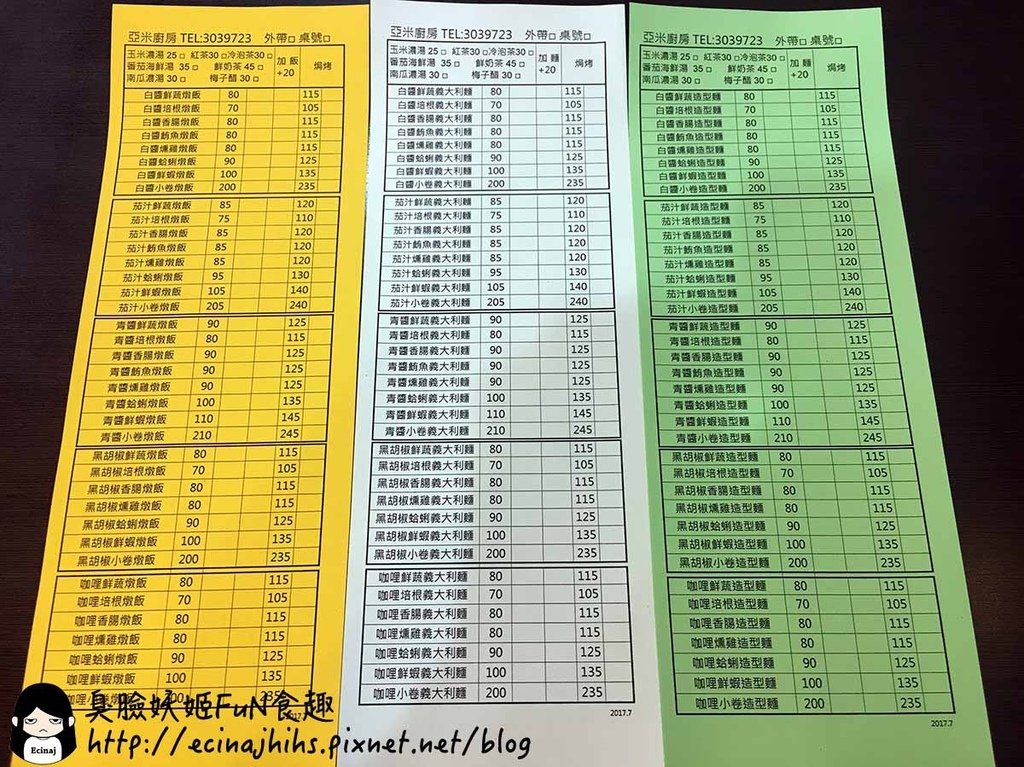 亞米廚房 TEL:3039723 外帶□ 桌號□
玉米濃湯 25 □ 紅茶30 □冷泡茶30□
番茄海鮮湯 35 □ 鮮奶茶 45 □
南瓜濃湯 30 □ 梅子醋 30 □
加飯 +20
焗烤
白醬鮮蔬燉飯 80 115
白醬培根燉飯 70 105
白醬香腸燉飯 80 115
白醬鮪魚燉飯 80 115
白醬燻雞燉飯 80 115
白醬蛤蜊燉飯 90 125
白醬鮮蝦燉飯 100 135
白醬小卷燉飯 200 235
茄汁鮮蔬燉飯 85 120
茄汁培根燉飯 75 110
茄汁香腸燉飯 85 120
茄汁鮪魚燉飯 85 120
茄汁燻雞燉飯 85 120
茄汁蛤蜊燉飯 95 130
茄汁鮮蝦燉飯 105 140
茄汁小卷燉飯 205 240
青醬鮮蔬燉飯 90 125
青醬培根燉飯 80 115
青醬香腸燉飯 90 125
青醬鮪魚燉飯 90 125
青醬燻雞燉飯 90 125
青醬蛤蜊燉飯 100 135
青醬鮮蝦燉飯 110 145
青醬小卷燉飯 210 245
黑胡椒鮮蔬燉飯 80 115
黑胡椒培根燉飯 70 105
黑胡椒香腸燉飯 80 115
黑胡椒燻雞燉飯 80 115
黑胡椒蛤蜊燉飯 90 125
黑胡椒鮮蝦燉飯 100 135
黑胡椒小卷燉飯 200 235
咖哩鮮蔬燉飯 80 115
咖哩培根燉飯 70 105
咖哩香腸燉飯 80 115
咖哩燻雞燉飯 80 115
咖哩蛤蜊燉飯 90 125
咖哩鮮蝦燉飯 100 135
235
亞米廚房 TEL:3039723 外帶□ 桌號□
玉米濃湯 25 □ 紅茶30 □冷泡茶30□
番茄海鮮湯 35 □ 鮮奶茶 45 □
南瓜濃湯 30 □ 梅子醋 30 □
加麵 +20
焗烤
白醬鮮蔬義大利麵 80 115
白醬培根義大利麵 70 105
白醬香腸義大利麵 80 115
白醬鮪魚義大利麵 80 115
白醬燻雞義大利麵 80 115
白醬蛤蜊義大利麵 90 125
白醬鮮蝦義大利麵 100 135
白醬小卷義大利麵 200 235
茄汁鮮蔬義大利麵 85 120
茄汁培根義大利麵 75 110
茄汁香腸義大利麵 85 120
茄汁鮪魚義大利麵 85 120
茄汁燻雞義大利麵 85 120
茄汁蛤蜊義大利麵 95 130
茄汁鮮蝦義大利麵 105 140
茄汁小卷義大利麵 205 240
青醬鮮蔬義大利麵 90 125
青醬培根義大利麵 80 115
青醬香腸義大利麵 90 125
青醬鮪魚義大利麵 90 125
青醬燻雞義大利麵 90 125
青醬蛤蜊義大利麵 100 135
青醬鮮蝦義大利麵 110 145
青醬小卷義大利麵 210 245
黑胡椒鮮蔬義大利麵 80 115
黑胡椒培根義大利麵 70 105
黑胡椒香腸義大利麵 80 115
黑胡椒燻雞義大利麵 80 115
黑胡椒蛤蜊義大利麵 90 125
黑胡椒鮮蝦義大利麵 100 135
黑胡椒小卷義大利麵 200 235
咖哩鮮蔬義大利麵 80 115
咖哩培根義大利麵 70 105
咖哩香腸義大利麵 80 115
咖哩燻雞義大利麵 80 115
咖哩蛤蜊義大利麵 90 125
咖哩鮮蝦義大利麵 100 135
咖哩小卷義大利麵 200 235
2017.7
亞米廚房 TEL:3039723 外帶□ 桌號□
玉米濃湯 25 □ 紅茶30 □冷泡茶30□
番茄海鮮湯 35 □ 鮮奶茶 45 □
南瓜濃湯 30 □ 梅子醋 30 □
加麵 +20
焗烤
白醬鮮蔬造型麵 80 115
白醬培根造型麵 70 105
白醬香腸造型麵 80 115
白醬鮪魚造型麵 80 115
白醬燻雞造型麵 80 115
白醬蛤蜊造型麵 90 125
白醬鮮蝦造型麵 100 135
白醬小卷造型麵 200 235
茄汁鮮蔬造型麵 85 120
茄汁培根造型麵 75 110
茄汁香腸造型麵 85 120
茄汁鮪魚造型麵 85 120
茄汁燻雞造型麵 85 120
茄汁蛤蜊造型麵 95 130
茄汁鮮蝦造型麵 105 140
茄汁小卷造型麵 205 240
青醬鮮蔬造型麵 90 125
青醬培根造型麵 80 115
青醬香腸造型麵 90 125
青醬鮪魚造型麵 90 125
青醬燻雞造型麵 90 125
青醬蛤蜊造型麵 100 135
青醬鮮蝦造型麵 110 145
青醬小卷造型麵 210 245
黑胡椒鮮蔬造型麵 80 115
黑胡椒培根造型麵 70 105
黑胡椒香腸造型麵 80 115
黑胡椒燻雞造型麵 80 115
黑胡椒蛤蜊造型麵 90 125
黑胡椒鮮蝦造型麵 100 135
黑胡椒小卷造型麵 200 235
咖哩鮮蔬造型麵 80 115
咖哩培根造型麵 70 105
咖哩香腸造型麵 80 115
咖哩燻雞造型麵 80 115
咖哩蛤蜊造型麵 90 125
咖哩鮮蝦造型麵 100 135
咖哩小卷造型麵 200 235
2017.7
Ecinaj
臭臉妖姬FuN食趣
http://ecinajhihs.pixnet.net/blog